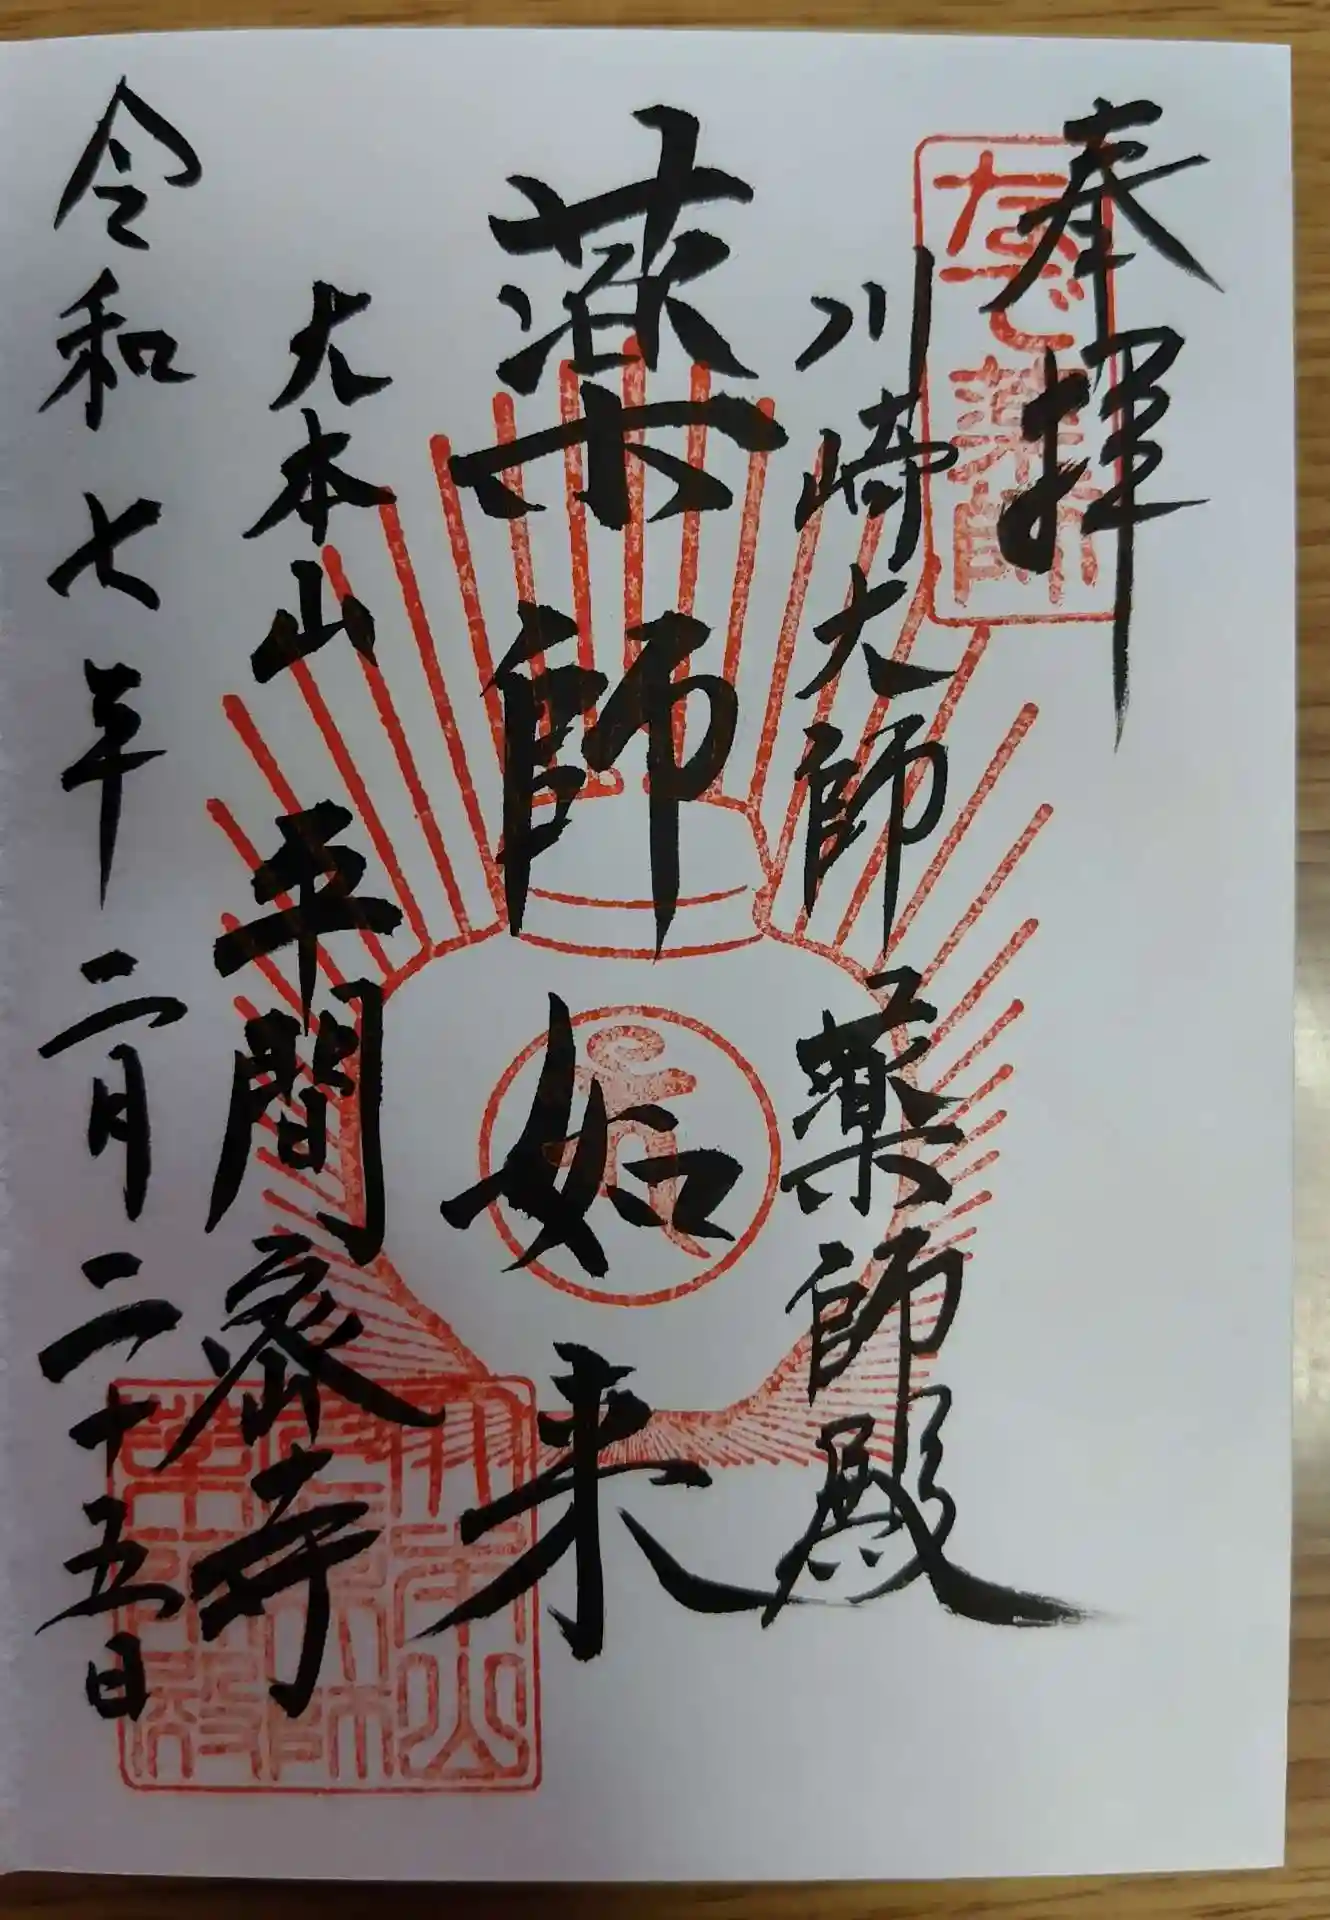 奉拝
なで薬師
川崎大師薬師殿
薬師如来
大本山
平間寺
令和七年二月二十五日